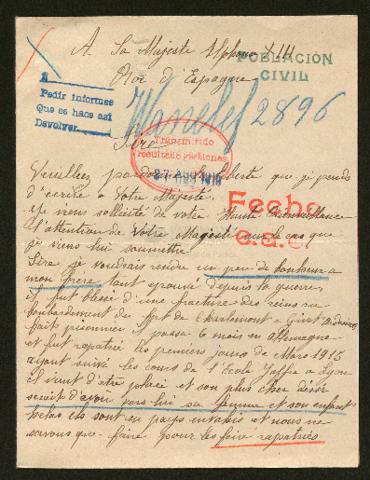 A Sa Majesté Alphonse XIII
Roi d'Espagne
POBLACIÓN
CIVIL
A
Pedir informes
Que se hace así
Devolver
2896
Sire
Transmitido
resultado gestiones
27 AGO 1915
Veuillez pardonner la liberté que je prends
d'écrire à Votre Majesté.
Fecha
e.s.c.
Je viens solliciter de votre Haute Bienveillance
l'attention de Votre Majesté sur le cas que
je viens lui soumettre
Sire je voudrais rendre un peu de bonheur à
mon frère tant éprouvé depuis la guerre,
il fut blessé d'une fracture des reins au
bombardement du fort de Charlemont à Givet Ardennes
fait prisonnier il passa 6 mois en Allemagne
et fut rapatrié les premiers jours de Mars 1915
ayant suivi les cours de l'École Joffre à Lyon
il vient d'être placé et son plus cher désir
serait d'avoir près lui sa femme et son enfant
hélas ils sont en pays envahis et nous ne
savons que faire pour les faire rapatriés